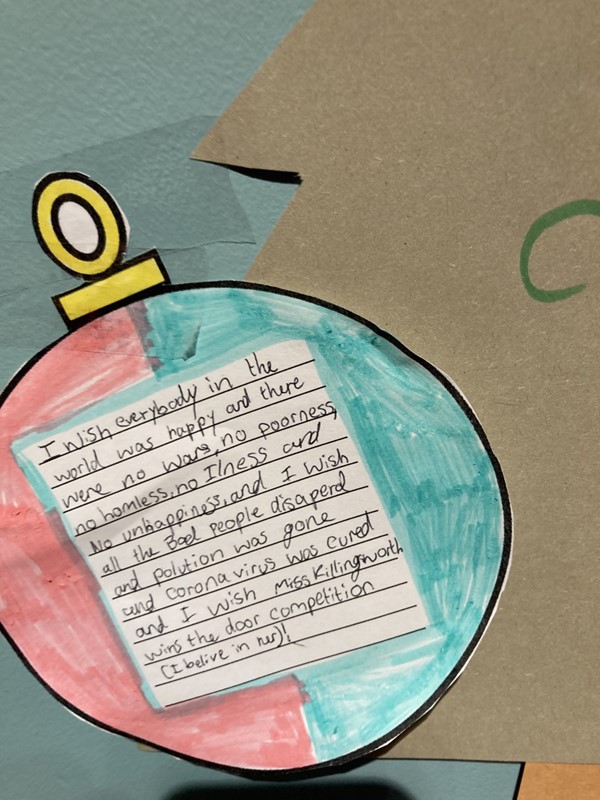 I wish everybody in the
world was happy and there
were no wars, no poorness,
no homless, no Ilness and
No unhappiness, and I wish
all the Bad people disaperd
and polution was gone
and coronavirus was cured
and I wish Miss Killingworth
wins the door competition
(I belive in her)!